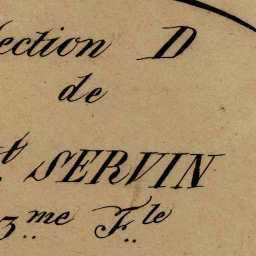 ection D
de
t SERVIN
3.me F.le